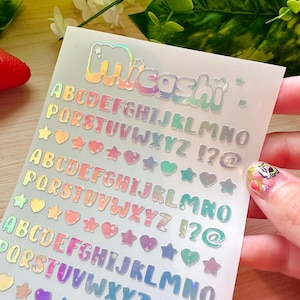 Micashi
ABCDEFGHIJKLMNO
PQRSTUVWXYZ !?@
ABCDEFGHIJKLMNO
PQRSTUVWXYZ !?@
ABCDEFGHIJKLMNO
PQRSTUVWXYZ